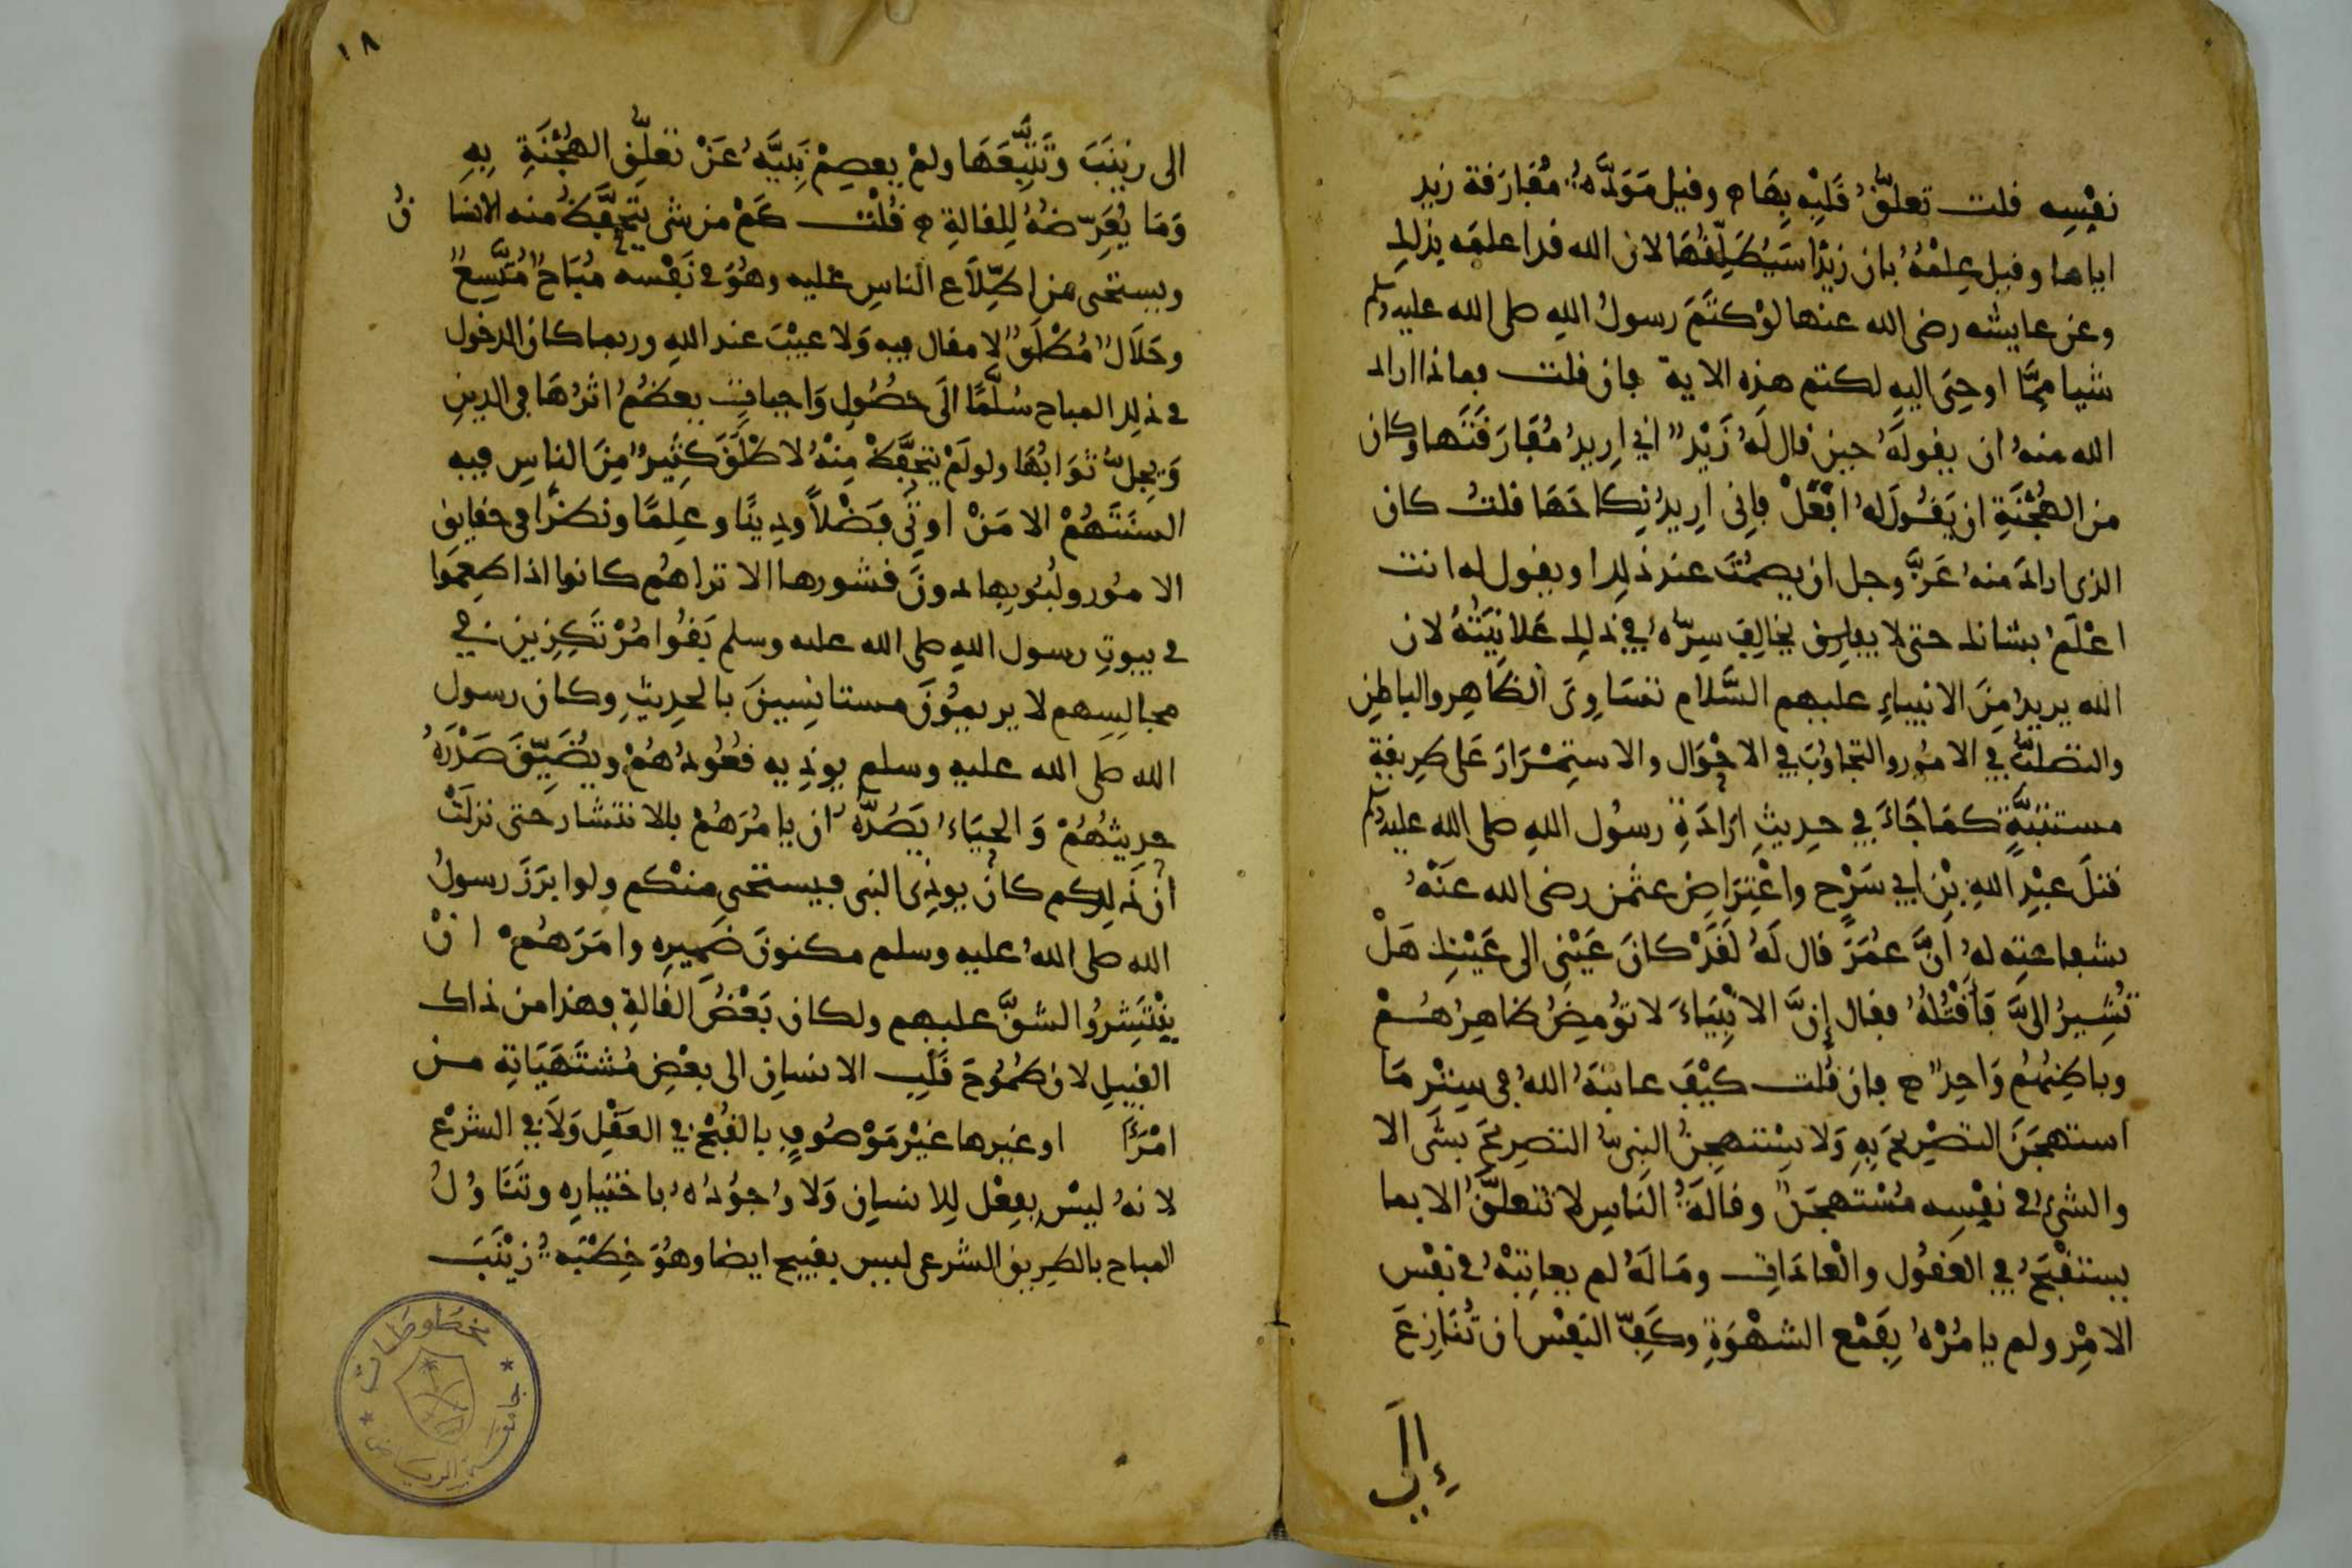 نفسه قلت تعلق قلبه بها وقيل مودة مفارقة زيد
اياها وقيل علمه بان زيدا سيطلقها لان الله قد اعلمه بذلك
وعن عايشه رضى الله عنها لو كتم رسول الله صلى الله عليه وسلم
شيا مما اوحى اليه لكتم هذه الاية فان قلت فماذا اراد
الله منه ان يقوله حين قال له زيد اني اريد مفارقتها وكان
من الهجنة ان يقول له افعل فاني اريد نكاحها قلت كان
الذى اراد منه عز وجل ان يصمت عند ذلك او يقول له انت
اعلم بشانك حتى لا يخالف سره في ذلك علانيته لان
الله يريد من الانبياء عليهم السلام تساوى الظاهر والباطن
والتصلب في الامور والتجاوب في الاحوال والاستمرار على طريقة
مستتبة كما جاء في حديث ارادة رسول الله صلى الله عليه وسلم
قتل عبد الله بن ابي سرح واعتراض عثمن رضى الله عنه
بشفاعته له ان عمر قال له لقد كان عيني الى عينك هل
تشير الى فاقتله فقال إن الانبياء لا تومض ظاهرهم
وباطنهم واحد فان قلت كيف عاتبه الله في ستر ما
استهجن التصريح به ولا يستهجن النبي التصريح بشى الا
والشئ في نفسه مستهجن وقالة الناس لا تتعلق الا بما
يستقبح في العقول والعادات وما له لم يعاتبه في نفس
الامر ولم يامره بقمع الشهوة وكف النفس ان تنازع
إلى
١٨
الى زينب وتتبعها ولم يعصم نبيه عن تعلق الهجنة به
وما يعرضه للقالة قلت كم من شى يتحفظ منه الانسان
ويستحى من اطلاع الناس عليه وهو في نفسه مباح متسع
وحلال مطلق لا مقال فيه ولا عيب عند الله وربما كان الدخول
في ذلك المباح سلما الى حصول واجبات يعظم اثرها في الدين
ويجل ثوابها ولو لم يتحفظ منه لاطلق كثير من الناس فيه
السنتهم الا من اوتي فضلا ودينا وعلما ونظرا في حقايق
الامور ولبوبها دون قشورها الا تراهم كانوا اذا طعموا
في بيوت رسول الله صلى الله عليه وسلم بقوا مرتكزين في
مجالسهم لا يريمون مستانسين بالحديث وكان رسول
الله صلى الله عليه وسلم يوذيه قعودهم ويضيق صدره
حديثهم والحياء يصده ان يامرهم بالانتشار حتى نزلت
ان ذلكم كان يوذى النبى فيستحى منكم ولو ابرز رسول
الله صلى الله عليه وسلم مكنون ضميره وامرهم ان
ينتشروا لشق عليهم ولكان بعض القالة فهذا من ذاك
القبيل لان طموح قلب الانسان الى بعض مشتهياته من
امرأة او غيرها غير موصوف بالقبح في العقل ولا في الشرع
لانه ليس بفعل للانسان ولا وجوده باختياره وتناول
المباح بالطريق الشرعى ليس بقبيح ايضا وهو خطبة زينب
مخطوطات
جامعة الرياض